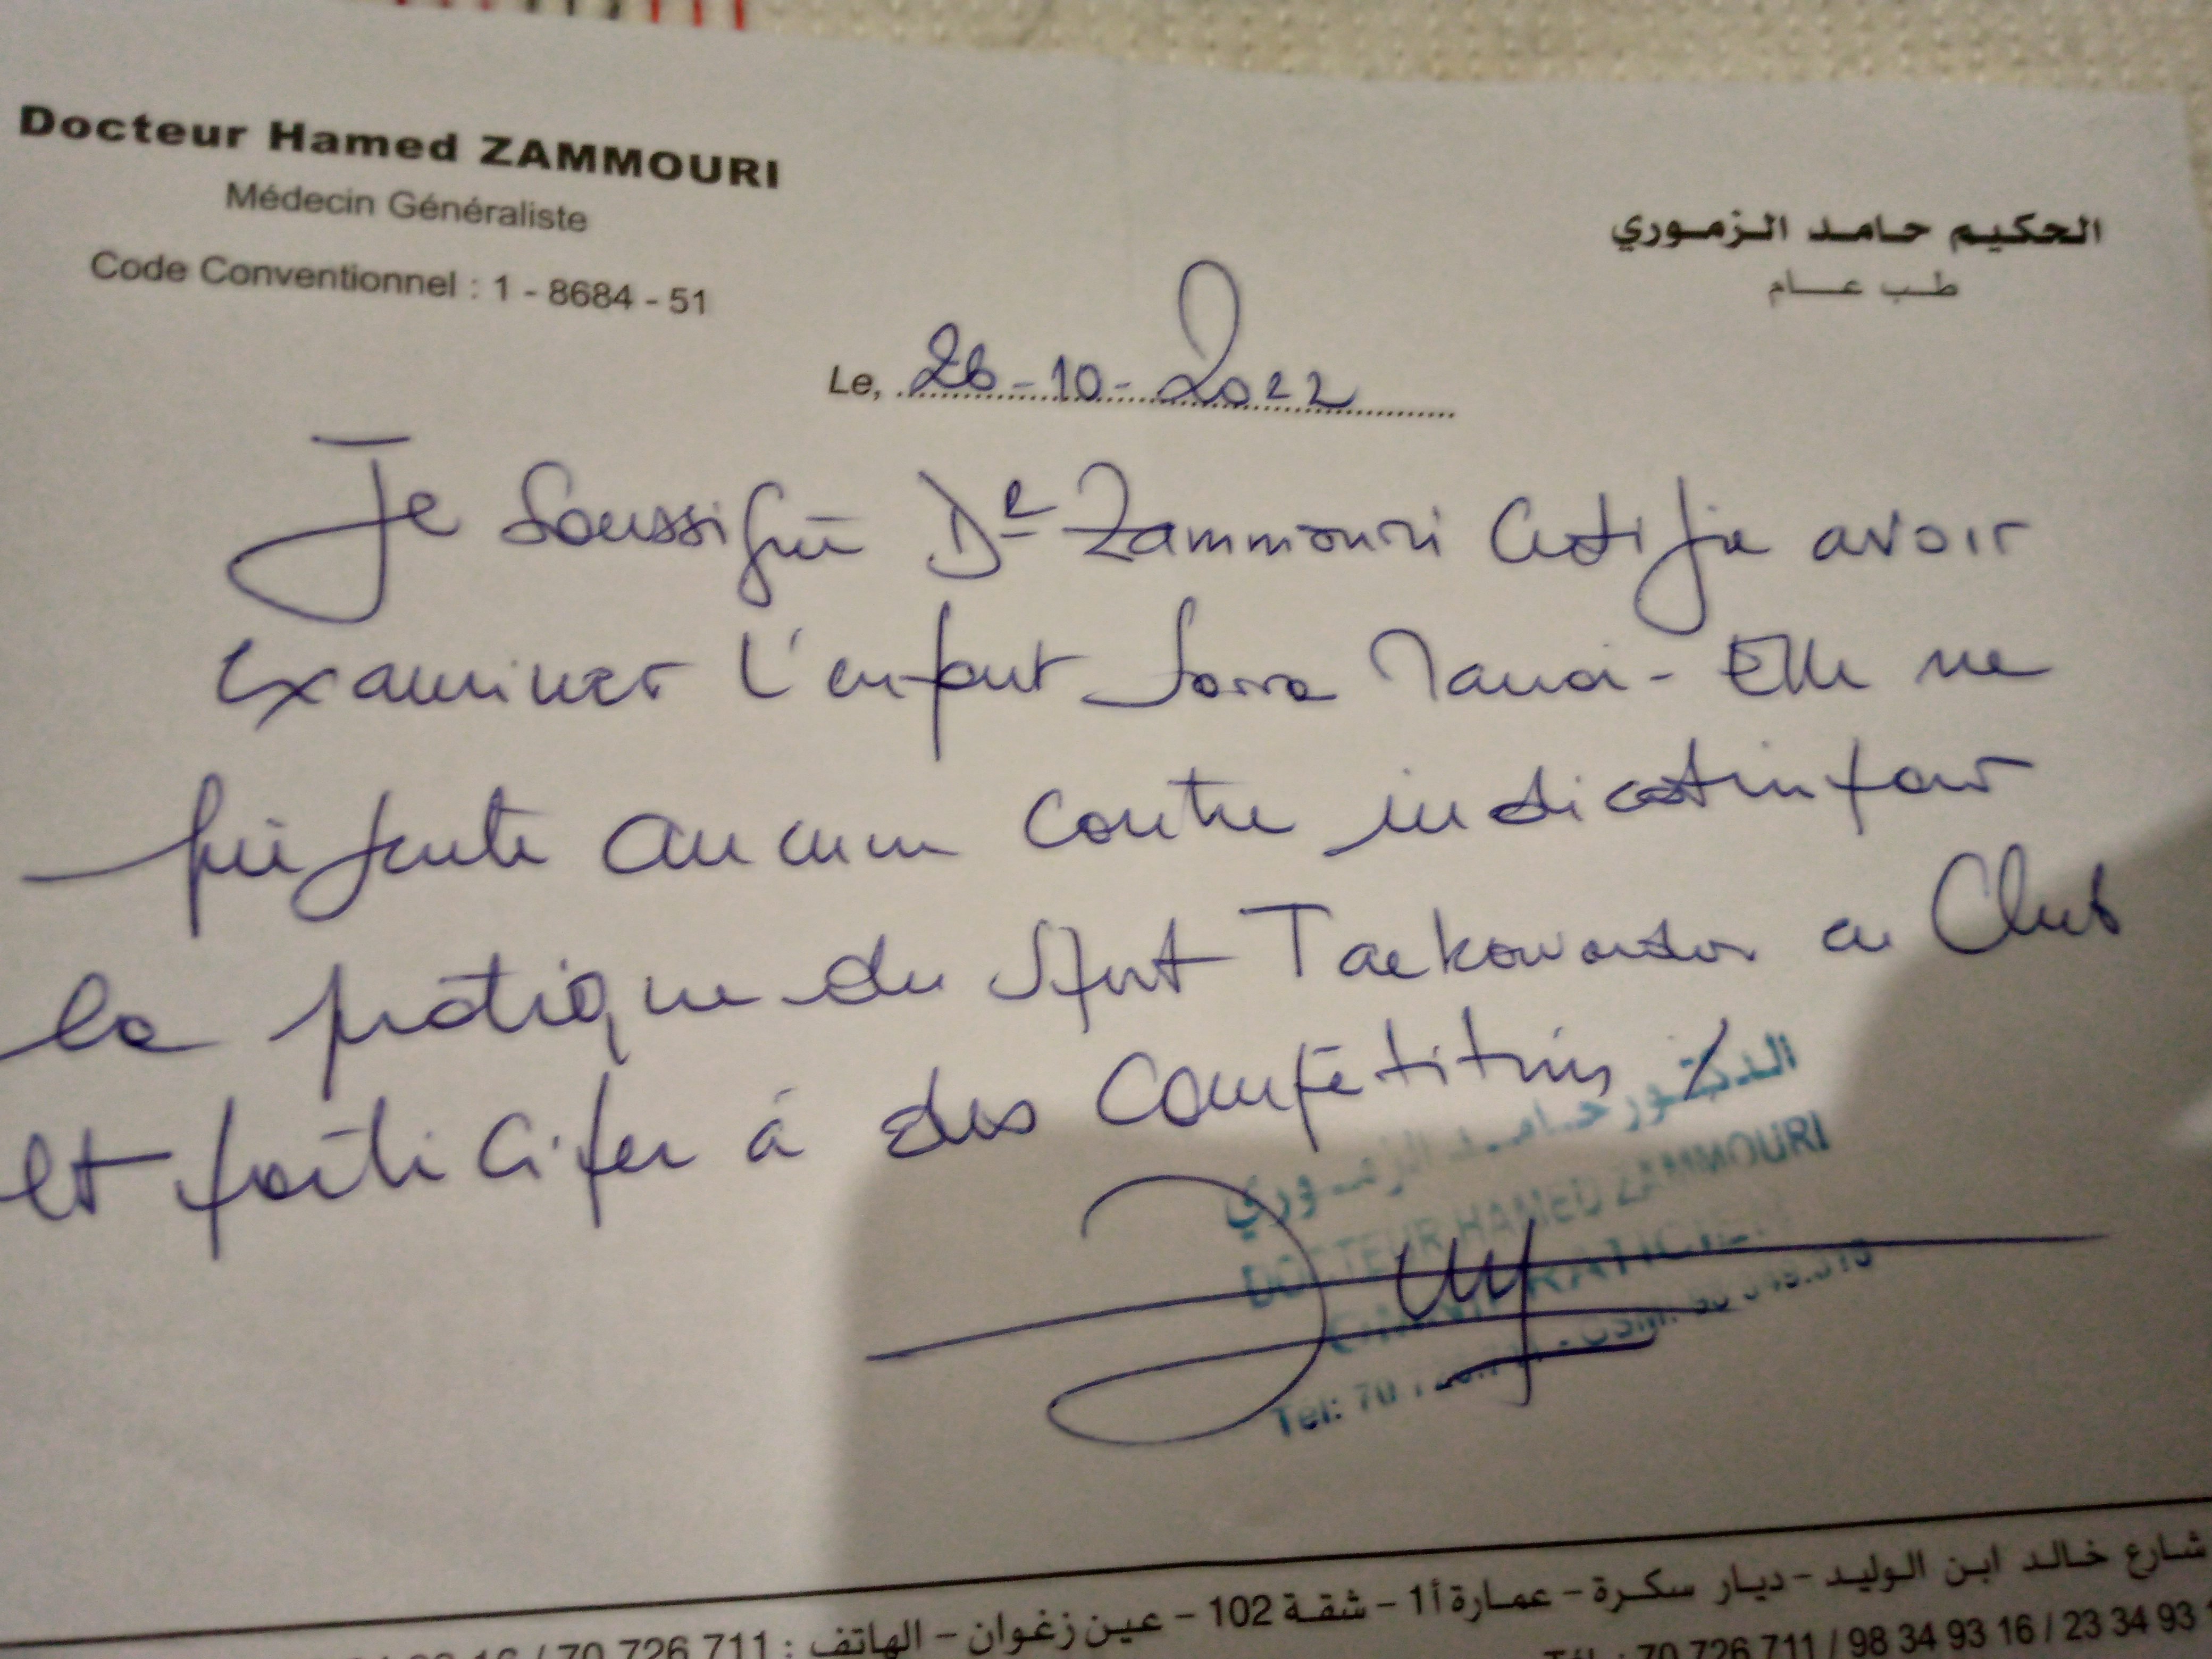 Docteur Hamed ZAMMOURI
Médecin Généraliste
Code Conventionnel : 1 - 8684 - 51
الحكيم حامد الزموري
طب عام
Le, 26-10-2022
Je soussigné Dr Zammouri Certifie avoir
examiner l'enfant Sarra - Elle ne
présente aucun contre indication pour
la pratique du sport Taekowondo au Club
et participer à des Compétitions
الدكتور حامد الزموري
DOCTEUR HAMED ZAMMOURI
Tel: 70
شارع خالد ابن الوليد - ديار سكرة - عمارة أ1 - شقة 102 - عين زغوان - الهاتف : 70 726 711 /
Tél : 70 726 711 / 98 34 93 16 / 23 34 93